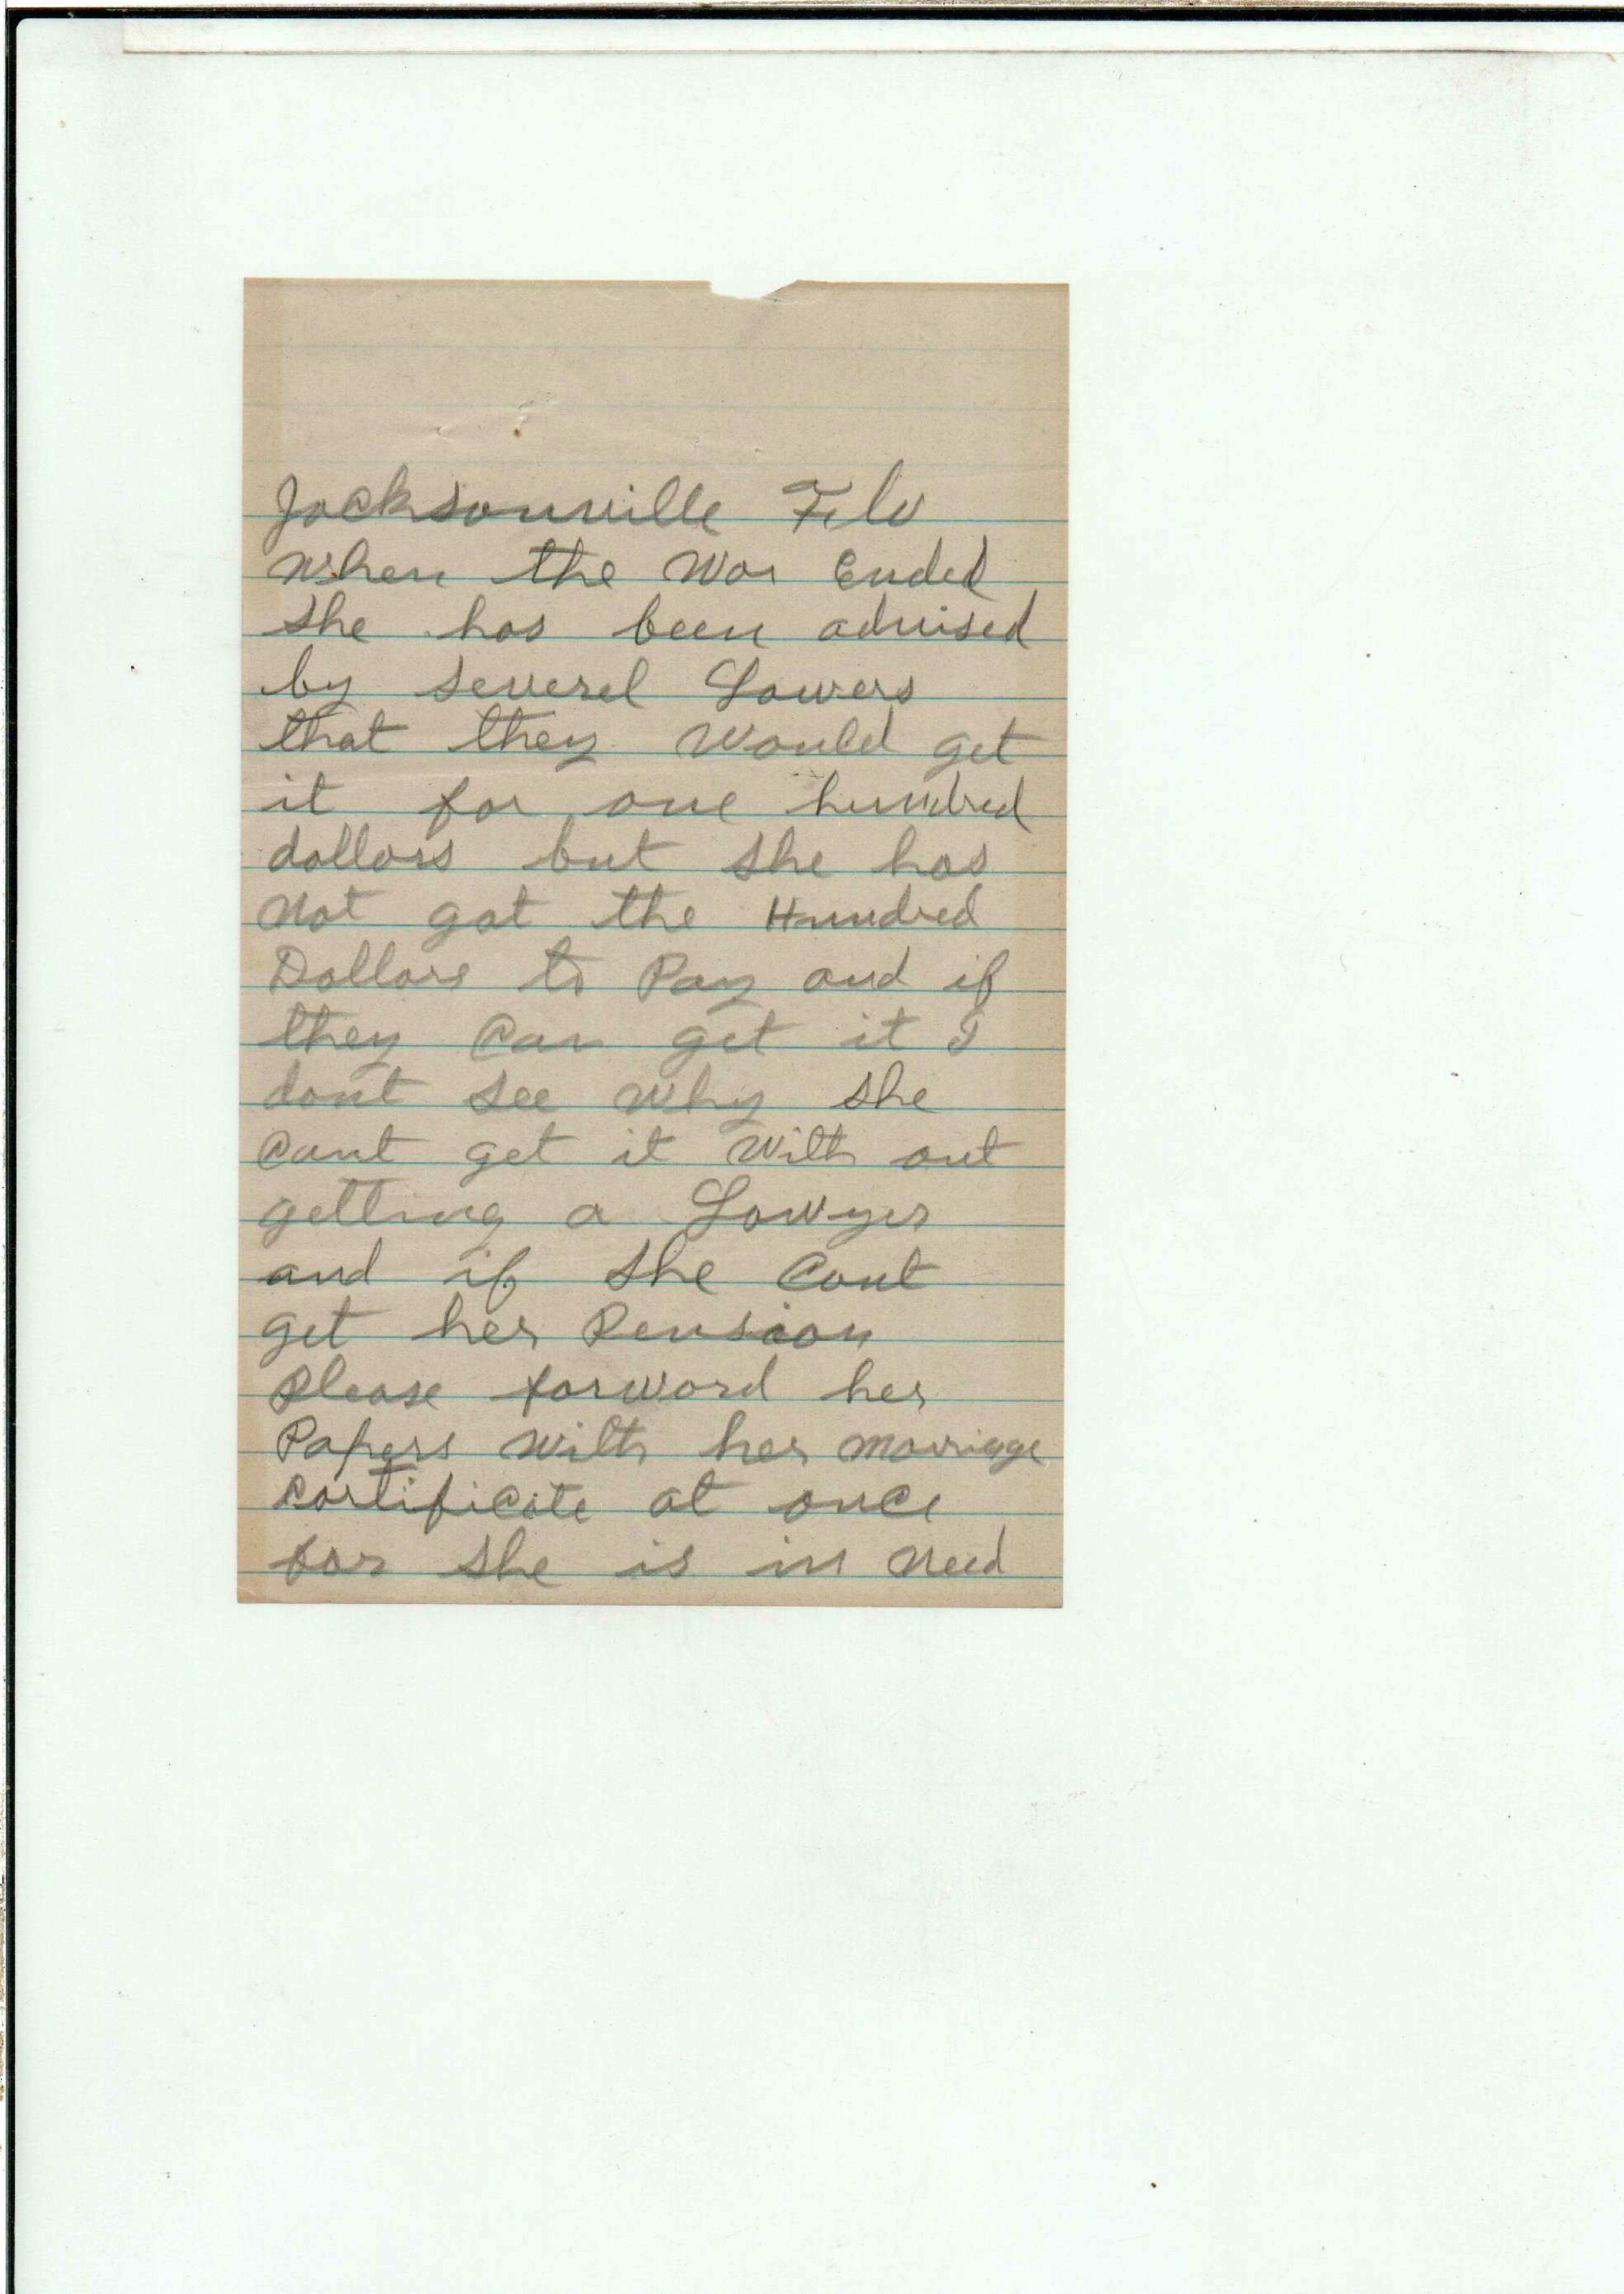 Jacksonville Fla
When the War Ended
she has been advised
by several Lawers
that they would get
it for one hundred
dollars but she has
not got the Hundred
Dollars to Pay and if
they can get it I
dont see why she
cant get it with out
getting a Lawyer
and if she cant
get her Pension
Please forward her
Papers with her marrigge
certificate at once
for she is in need